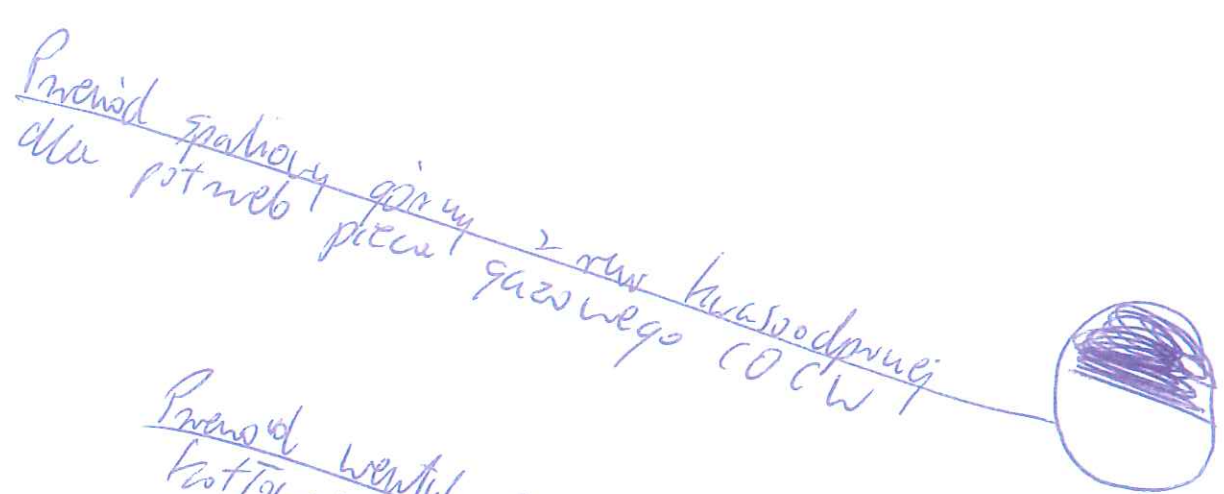 Przewód spalinowy górny z rur kwasoodpornej
dla potrzeb pieca gazowego CO CW
Przewód